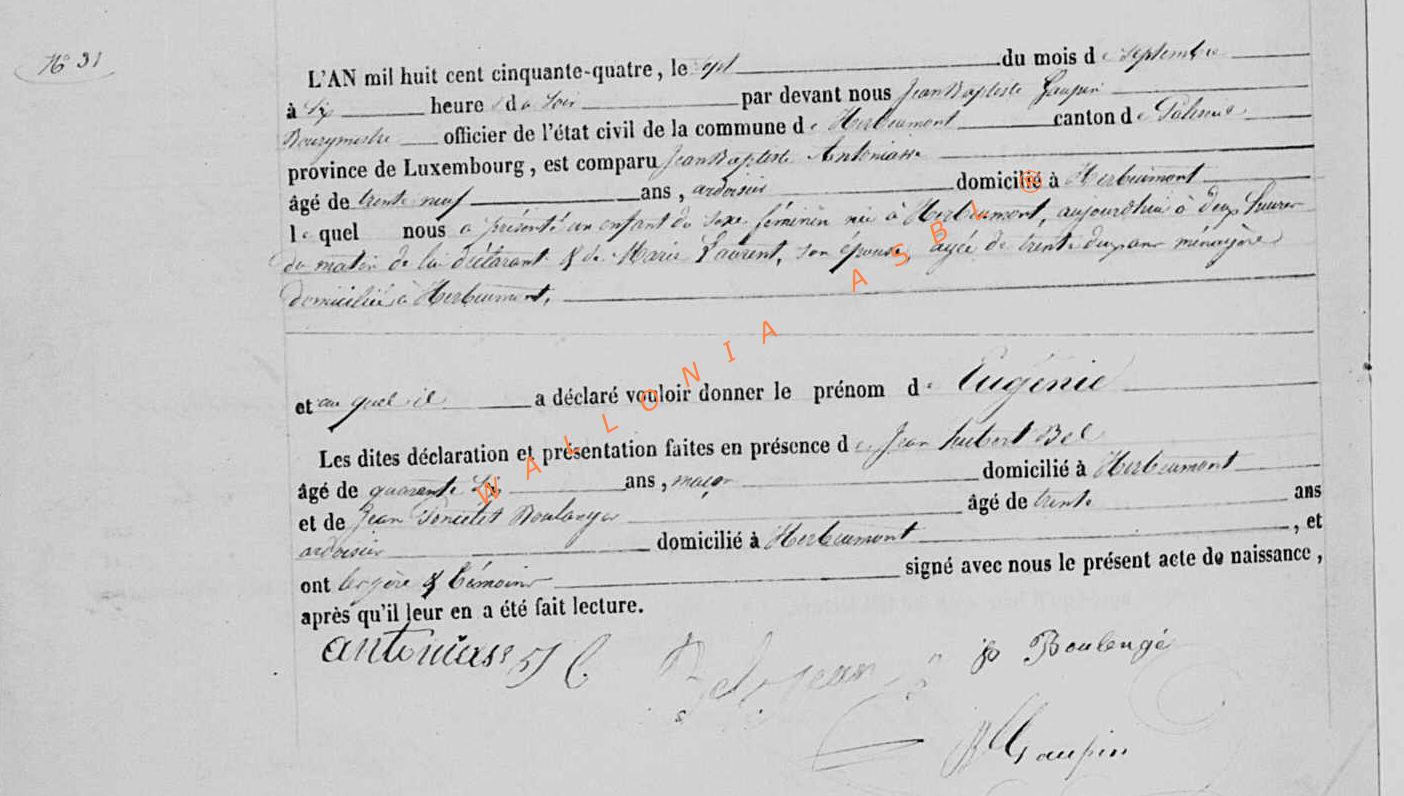 N° 31
L'AN mil huit cent cinquante-quatre, le sept du mois de septembre
à six heures du soir par devant nous Jean Baptiste Gaupin
Bourgmestre officier de l'état civil de la commune de Herbeumont canton de Paliseul
province de Luxembourg, est comparu Jean Baptiste Antoniasse
âgé de trente neuf ans, ardoisier domicilié à Herbeumont
lequel nous a présenté un enfant du sexe féminin née à Herbeumont, aujourdhui à deux heures
du matin de lui déclarant & de Marie Laurent, son épouse, agée de trente deux ans ménagère
domiciliée à Herbeumont,
et au quel il a déclaré vouloir donner le prénom de Eugénie
Les dites déclaration et présentation faites en présence de Jean hubert Bel
âgé de quarante six ans, maçon domicilié à Herbeumont
et de Jean Boulanger âgé de trente ans
ardoisier domicilié à Herbeumont, et
ont les père & témoins signé avec nous le présent acte de naissance,
après qu'il leur en a été fait lecture.
antoniass
Bel jean
jp Boulengé
Gaupin
WALLONIA ASBL ®